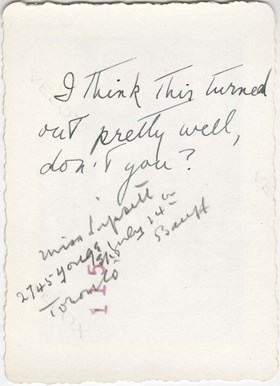 I think this turned
out pretty well,
don't you?
Miss Lipsett
2745 Yonge St July 24
Toronto Banff
115